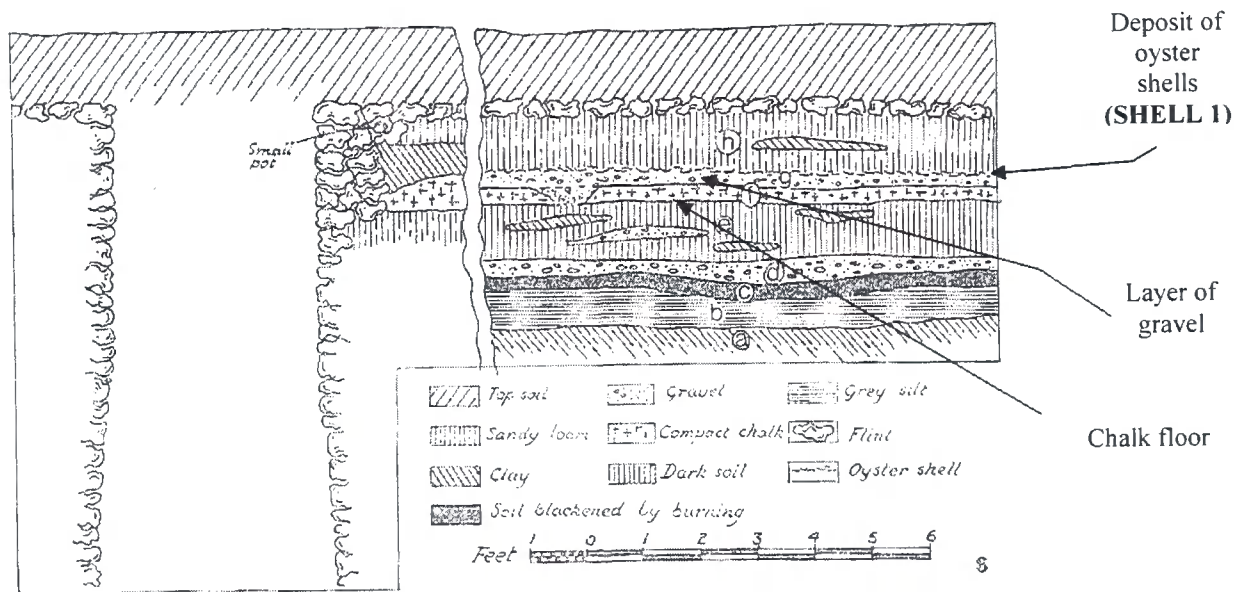 Deposit of
oyster
shells
(SHELL 1)
Small
pot
h
g
f
e
d
c
b
a
Layer of
gravel
Chalk floor
Top soil Gravel Grey silt
Sandy loam Compact chalk Flint
Clay Dark soil Oyster shell
Soil blackened by burning
Feet 1 0 1 2 3 4 5 6
8